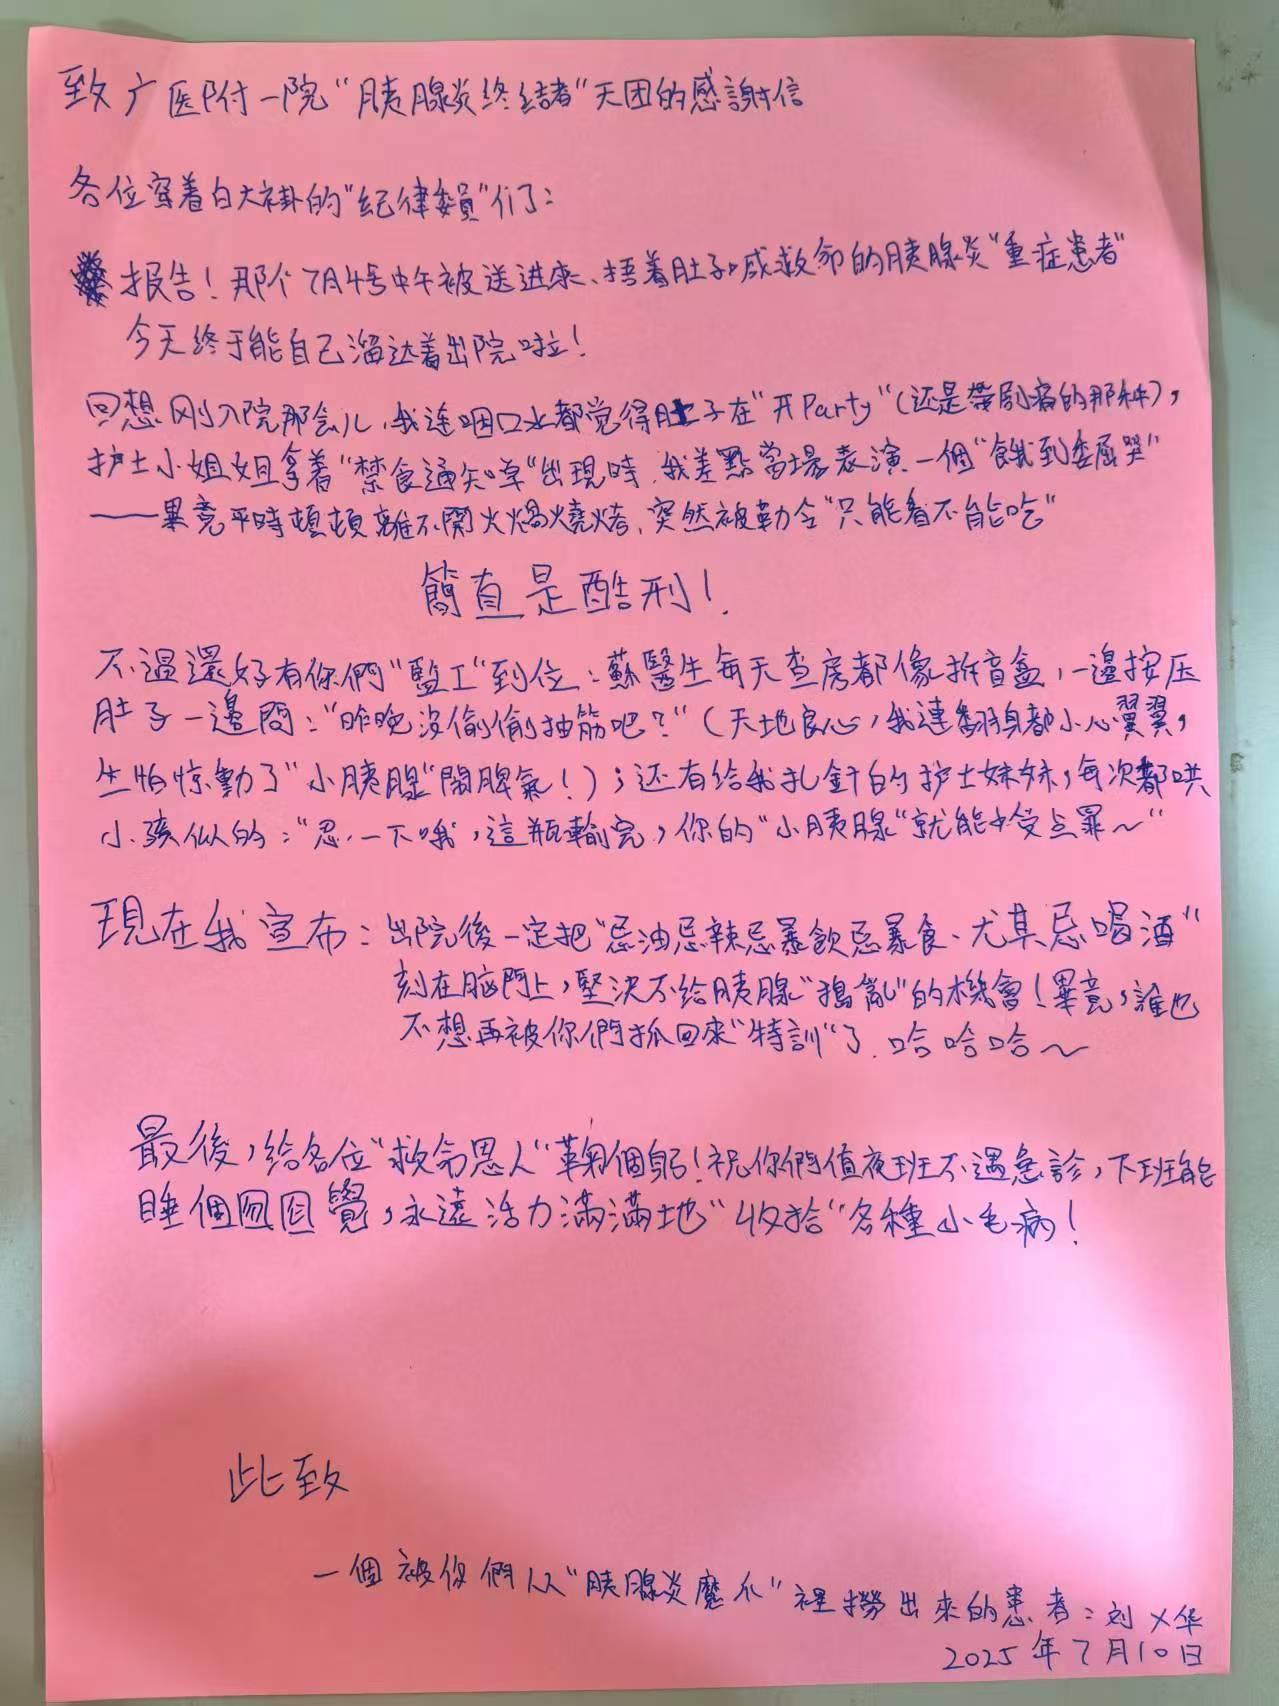 致广医附一院“胰腺炎终结者”天团的感謝信
各位穿着白大褂的“纪律委員”们：
报告！那个7月4号中午被送进來、捂着肚子喊救命的胰腺炎“重症患者”
今天终于能自己溜达着出院啦！
回想刚入院那会儿，我连咽口水都觉得肚子在“开Party”（还是带剧痛的那种），
护士小姐姐拿着“禁食通知单”出現時，我差點當場表演一個“餓到委屈哭”
——畢竟平時頓頓離不開火鍋燒烤，突然被勒令“只能看不能吃”
簡直是酷刑！
不過還好有你們“監工”到位：蘇醫生每天查房都像拆盲盒，一邊按压
肚子一邊問：“昨晚没偷偷抽筋吧？”（天地良心，我連翻身都小心翼翼，
生怕惊動了“小胰腺”鬧脾氣！）；还有给我扎針的护士妹妹，每次都哄
小孩似的：“忍一下哦，這瓶輸完，你的“小胰腺”就能少受点罪～”
現在我宣布：出院後一定把“忌油忌辣忌暴飲忌暴食、尤其忌喝酒”
刻在脑門上，堅決不给胰腺“搗亂”的機會！畢竟，誰也
不想再被你們抓回來“特訓”了，哈哈哈～
最後，给各位“救命恩人”鞠個躬！祝你們值夜班不遇急診，下班能
睡個囫囵覺，永遠活力滿滿地“收拾”各種小毛病！
此致
一個被你們从“胰腺炎魔爪”裡撈出來的患者：刘X华
2025年7月10日